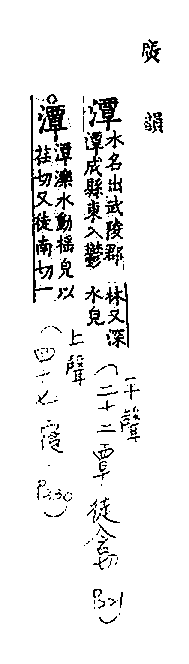 廣韻
潭 水名出武陵郡
潭成縣東入鬱林又深
水皃
平聲
(二十二覃·徒含切 P221)
潭 潭濼水動搖皃以
荏切又徒南切一
上聲
(四十七寑·P330)